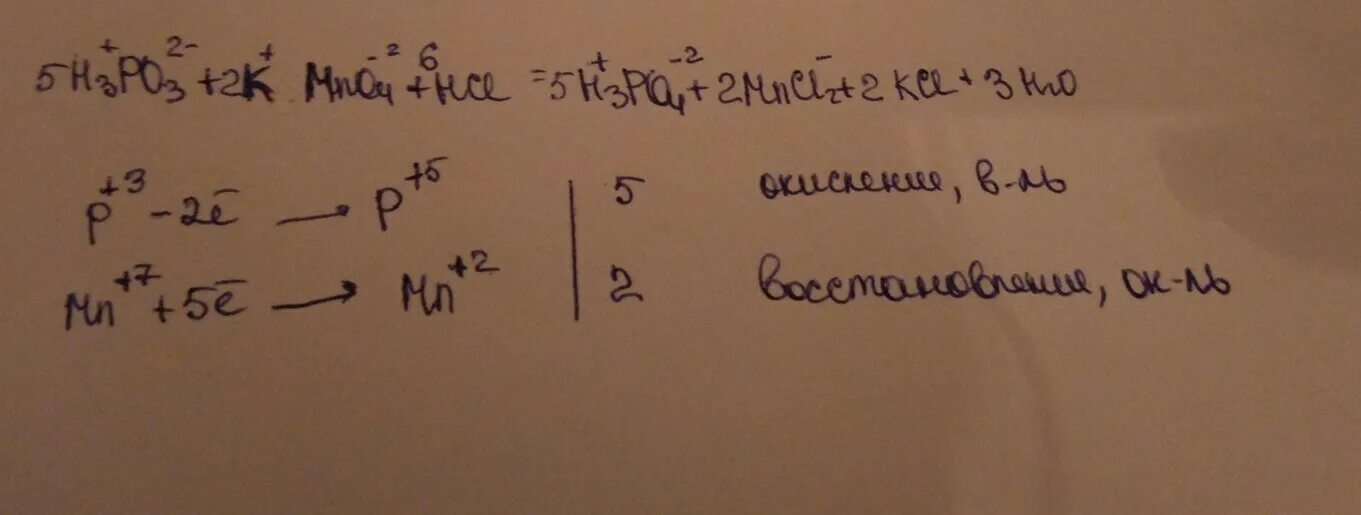 5H₃⁺PO₃²⁻ + 2K⁺ MnO₄⁻² + 6HCl = 5H₃⁺PO₄⁻² + 2MnCl₂⁻ + 2KCl + 3H₂O
P⁺³ - 2ē → P⁺⁵ | 5 окисление, в-ль
Mn⁺⁷ + 5ē → Mn⁺² | 2 восстановление, ок-ль